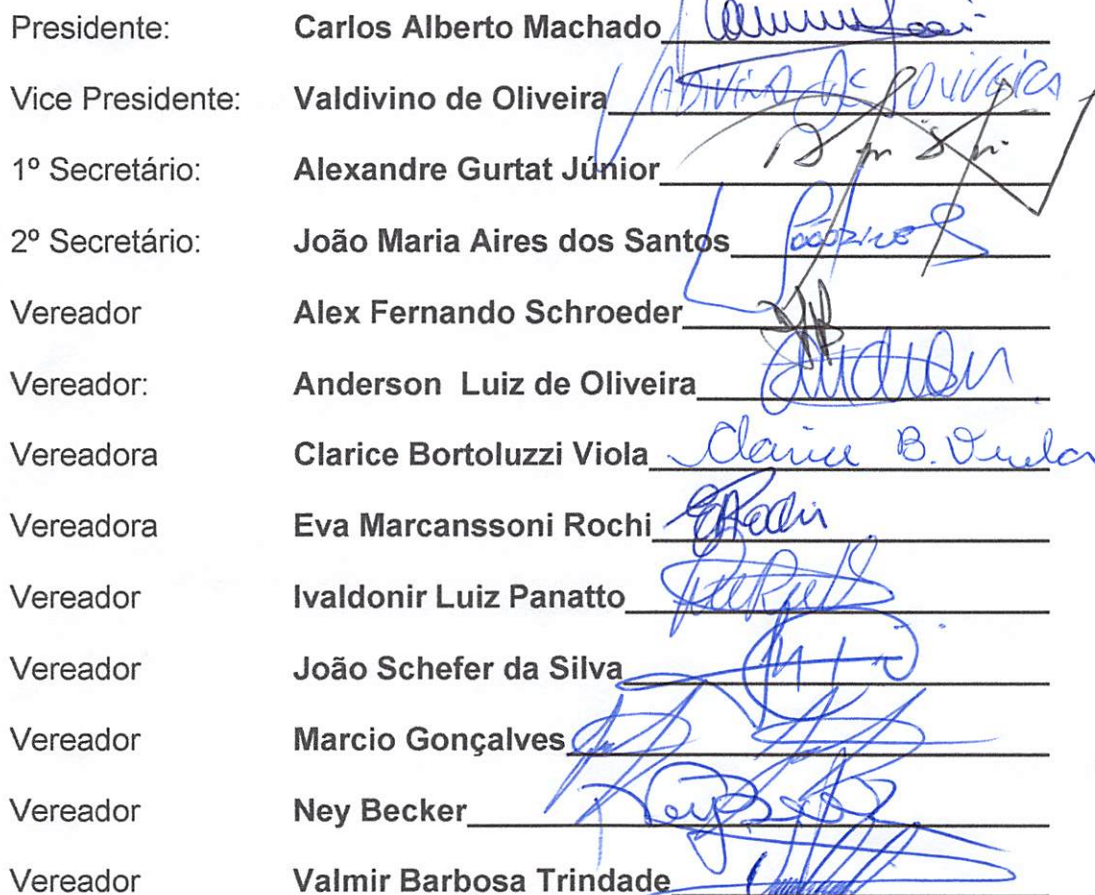 Presidente: Carlos Alberto Machado
Vice Presidente: Valdivino de Oliveira
1º Secretário: Alexandre Gurtat Júnior
2º Secretário: João Maria Aires dos Santos
Vereador Alex Fernando Schroeder
Vereador: Anderson Luiz de Oliveira
Vereadora Clarice Bortoluzzi Viola Clarice B. Viola
Vereadora Eva Marcanssoni Rochi
Vereador Ivaldonir Luiz Panatto
Vereador João Schefer da Silva
Vereador Marcio Gonçalves
Vereador Ney Becker
Vereador Valmir Barbosa Trindade